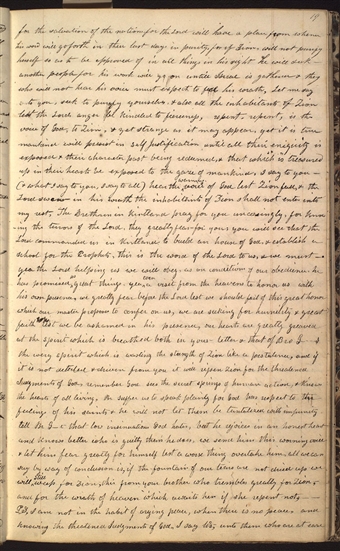 19
for the salvation of the nations for the Lord will have a place from whence
his word will go forth in these last days in purity, for if Zion, will not purify
himself so as to be approved of in all things in his sight he will seek
another people for his work will go on untill Isreal is gathered & they
who will not hear his voice must expect to feel his wrath, Let me say
unto you, seek to purefy yourselves, & also all the inhabitants of Zion
lest the Lords anger be kindled to fierceness, repent, repent, is the
voice of God, to Zion, & yet strange as it may appear, yet it is true
mankind will presist in self Justification until all their eniquity is
exposed & their character past being redeemed, & that which is treasured
up in their hearts be exposed to the gaze of mankind, I say to you—
(& what I say to you, I say to all) hear the warning voice of God lest Zion fall, & the
Lord swear in his wrath the inhabitants of Zion shall not enter into
my rest, The Brethren in Kirtland pray for you unceasingly, for know-
ing the terrors of the Lord, they greatly fear for you; you will see that the
Lord commanded us in Kirtland to build an house of God, & establish a
school for the Prophets, this is the word of the Lord to us, & we must—
yea the Lord helping us we will obey, as on conditions of our obedience, he
has promised, great things, yea even a visit from the heavens to honor us with
his own presence, we greatly fear before the Lord lest we should fail of this great honor
which our master proposes to confer on us, we are seeking for humility & great
faith lest we be ashamed in his presence, our hearts are greatly greaved
at the spirit which is breathed both in your letter & that of Bro G— &
the very spirit which is wasting the strength of Zion like a pestalence, and if
it is not detected & driven from you it will ripen Zion for the threatened
Judgments of God, remember God sees the secret springs of human action, & knows
the hearts of all living, Br suffer us to speak plainly for God has respect to the
feelings of his saints & he will not let them be tantalized with impunity
Tell Br G—t that low insinuations God hates, but he rejoices in an honest heart
and knows better who is guilty than he does, we send him this warning voice
& let him fear greatly for himself lest a worse thing overtake him, all we can
say by way of conclusion is, if the fountain of our tears are not dried up we
will still weep for Zion, this from your brother who trembles greatly for Zion,
and for the wrath of heaven which awaits her if she repent not—
P.S. I am not in the habit of crying peace, when there is no peace, and
knowing the threatened Judgments of God, I say Wo, unto them who are at ease